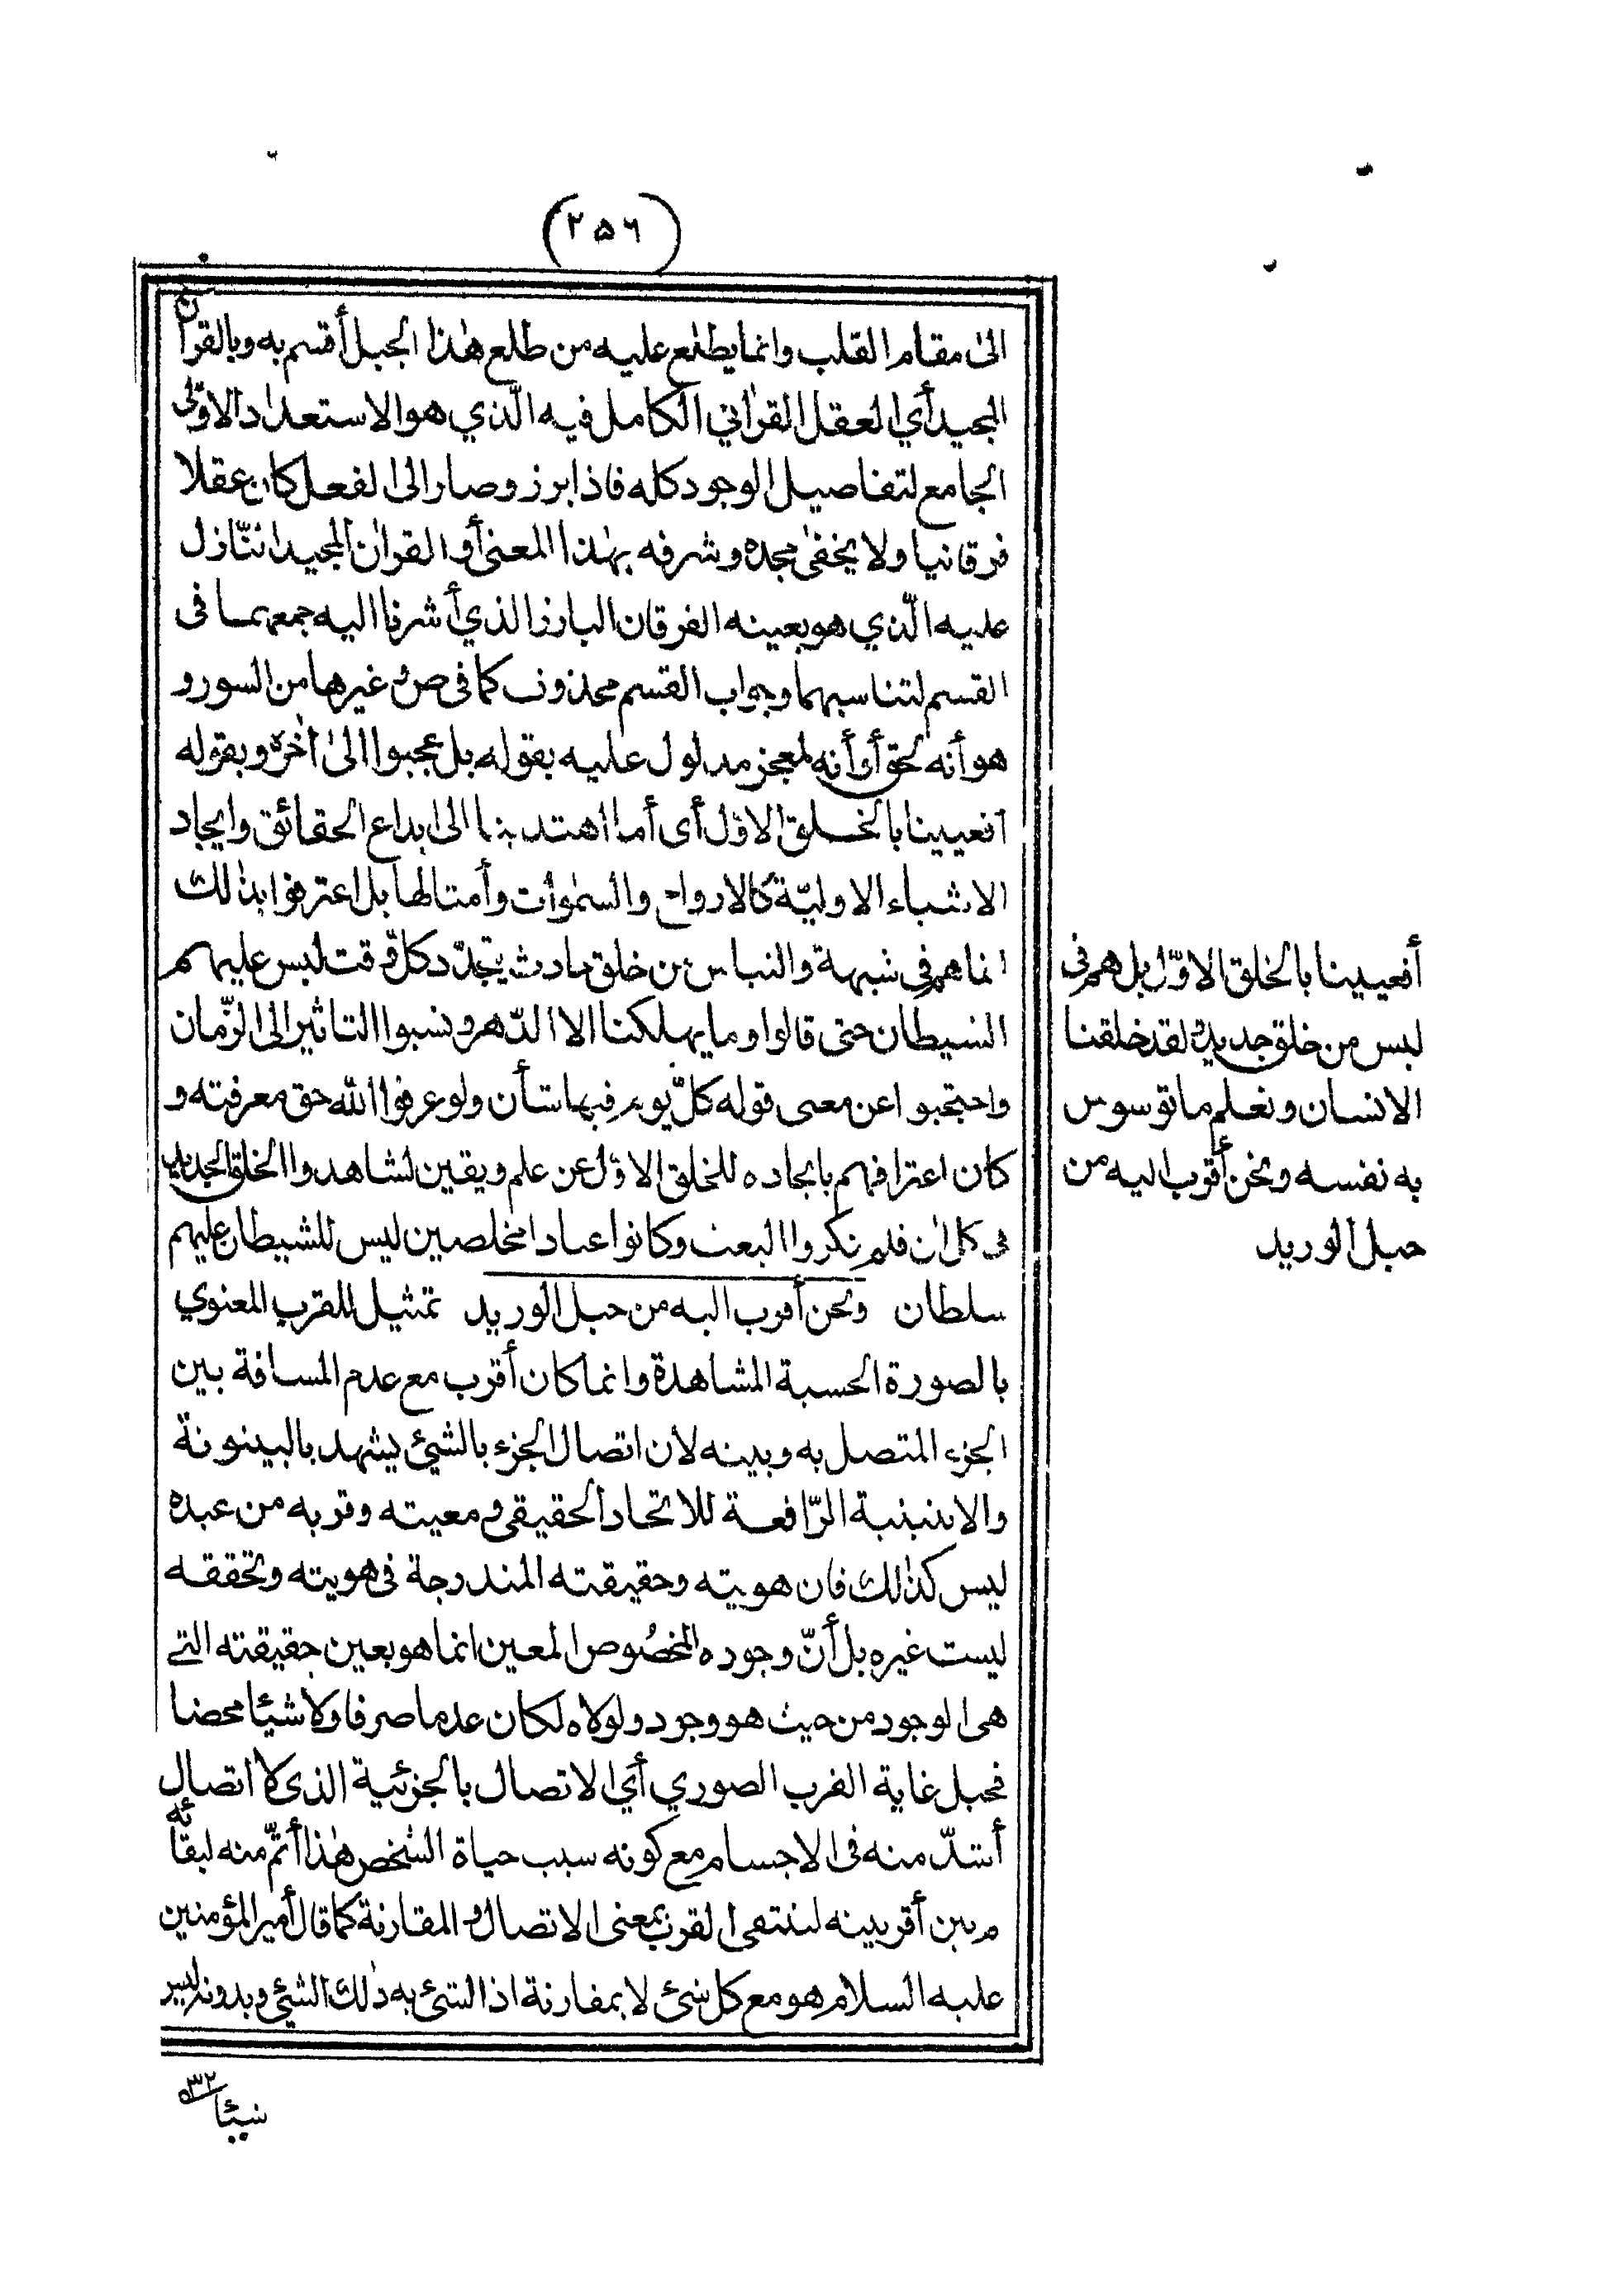 (٢٥٦)
الىٰ مقام القلب وانما يطلع عليه من طلع هٰذا الجبل أقسم به وبالقراٰن
المجيد أي العقل القراٰني الكامل فيه الّذي هو الاستعداد الاوّلى
الجامع لتفاصيل الوجود كله فاذا برز وصار الى الفعل كان عقلا
فرقانيا ولا يخفىٰ مجده وشرفه بهٰذا المعنى أو القراٰن المجيد النّازل
عليه الّذي هو بعينه الفرقان البارز الذي أشرنا اليه جمعهما فى
القسم لتناسبهما وجواب القسم محذوف كما فى صٓ وغيرها من السور و
هو أنه لحق أو أنه لمعجز مدلول عليه بقوله بل عجبوا الىٰ اٰخره وبقوله
أفعيينا بالخلق الاوّل أى أما اهتدينا الى ابداع الحقائق وايجاد
الاشياء الاوليّة كالارواح والسمٰوات وأمثالها بل اعترفوا بذٰلك
انما هم فى شبهة والتباس من خلق حادث يتجدّد كل وقت لبس عليهم
الشيطان حتى قالوا وما يهلكنا الا الدّهر ونسبوا التاثير الى الزّمان
واحتجبوا عن معنى قوله كلّ يوم فيها شأن ولو عرفوا اللّٰه حق معرفته و
كان اعترافهم بايجاده للخلق الاوّل عن علم ويقين لشاهدوا الخلق الجديد
فى كل اٰن فلم ينكروا البعث وكانوا عبادا مخلصين ليس للشيطان عليهم
سلطان ونحن أقرب اليه من حبل الوريد تمثيل للقرب المعنوي
بالصورة الحسية المشاهدة وانما كان أقرب مع عدم المسافة بين
الجزء المتصل به وبينه لان اتصال الجزء بالشيئ يشهد بالبينونة
والاثنينية الرّافعة للاتحاد الحقيقى ومعيته وقربه من عبده
ليس كذٰلك فان هويته وحقيقته المندرجة فى هويته وتحققه
ليست غيره بل أنّ وجوده المخصُوص المعين انما هو بعين حقيقته التے
هى الوجود من حيث هو وجود ولولاه لكان عدما صرفا ولا شيئا محضا
فحبل غاية القرب الصوري أي الاتصال بالجزئية الذى لا اتصال
أشدّ منه فى الاجسام مع كونه سبب حياة الشخص هٰذا أتمّ منه لبقائه
م بين أقربيته لينتفى القرب بمعنى الاتصال والمقارنة كما قال أمير المؤمنين
عليه السلام هو مع كل شئ لا بمقارنة اذ الشئ به ذٰلك الشئ وبدونه ليس
أفعيينا بالخلق الاوّل بل هم فى
لبس من خلق جديد ولقد خلقنا
الانسان ونعلم ما توسوس
به نفسه ونحن أقرب اليه من
حبل الوريد
٥٣٢
شيئا